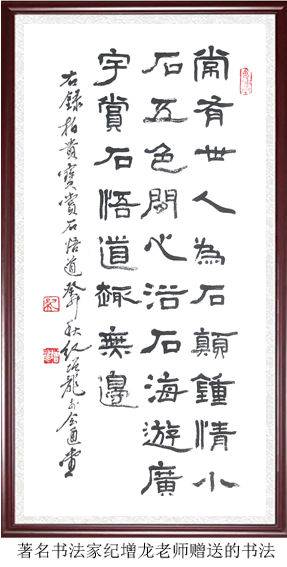 常有世人為石顛鍾情小
石五色間心浴石海遊廣
宇賞石悟道趣無邊
右錄柏貴寶賞石悟道 秋紀增龍
著名书法家纪增龙老师赠送的书法